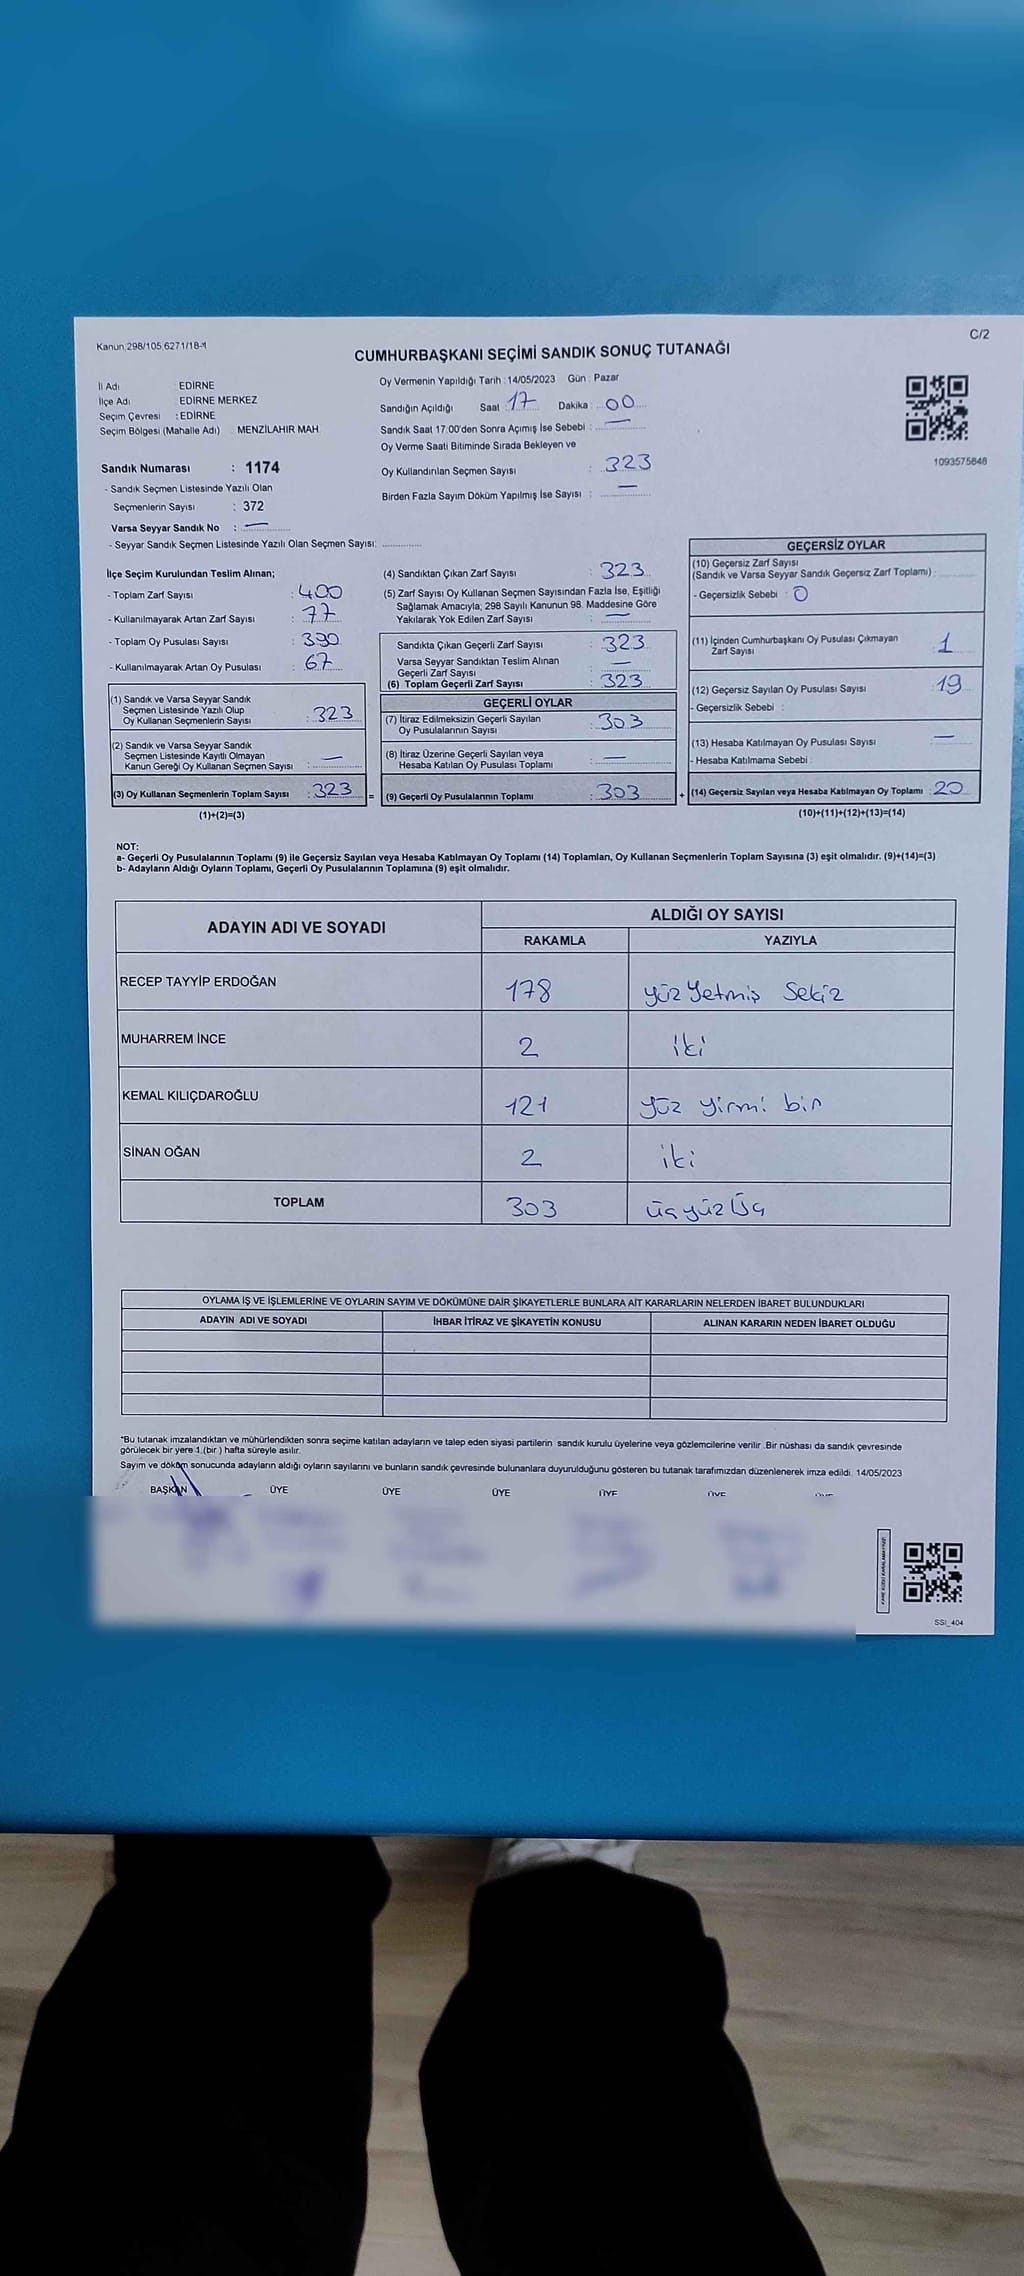 Kanun 298/105,6271/18-1
C/2
CUMHURBAŞKANI SEÇİMİ SANDIK SONUÇ TUTANAĞI
İl Adı : EDİRNE
İlçe Adı : EDİRNE MERKEZ
Seçim Çevresi : EDİRNE
Seçim Bölgesi (Mahalle Adı) : MENZİLAHIR MAH.
Sandık Numarası : 1174
- Sandık Seçmen Listesinde Yazılı Olan
Seçmenlerin Sayısı : 372
Varsa Seyyar Sandık No : —
- Seyyar Sandık Seçmen Listesinde Yazılı Olan Seçmen Sayısı:
Oy Vermenin Yapıldığı Tarih : 14/05/2023 Gün : Pazar
Sandığın Açıldığı Saat : 17 Dakika : 00
Sandık Saat 17:00'den Sonra Açımış İse Sebebi : —
Oy Verme Saati Bitiminde Sırada Bekleyen ve
Oy Kullandırılan Seçmen Sayısı : 323
Birden Fazla Sayım Döküm Yapılmış İse Sayısı : —
1093575848
İlçe Seçim Kurulundan Teslim Alınan;
- Toplam Zarf Sayısı : 400
- Kullanılmayarak Artan Zarf Sayısı : 77
- Toplam Oy Pusulası Sayısı : 390
- Kullanılmayarak Artan Oy Pusulası : 67
(1) Sandık ve Varsa Seyyar Sandık
Seçmen Listesinde Yazılı Olup
Oy Kullanan Seçmenlerin Sayısı : 323
(2) Sandık ve Varsa Seyyar Sandık
Seçmen Listesinde Kayıtlı Olmayan
Kanun Gereği Oy Kullanan Seçmen Sayısı : —
(3) Oy Kullanan Seçmenlerin Toplam Sayısı : 323
(1)+(2)=(3)
(4) Sandıktan Çıkan Zarf Sayısı : 323
(5) Zarf Sayısı Oy Kullanan Seçmen Sayısından Fazla İse, Eşitliği
Sağlamak Amacıyla; 298 Sayılı Kanunun 98. Maddesine Göre
Yakılarak Yok Edilen Zarf Sayısı : —
Sandıkta Çıkan Geçerli Zarf Sayısı : 323
Varsa Seyyar Sandıktan Teslim Alınan
Geçerli Zarf Sayısı : —
(6) Toplam Geçerli Zarf Sayısı : 323
GEÇERLİ OYLAR
(7) İtiraz Edilmeksizin Geçerli Sayılan
Oy Pusulalarının Sayısı : 303
(8) İtiraz Üzerine Geçerli Sayılan veya
Hesaba Katılan Oy Pusulası Toplamı : —
= (9) Geçerli Oy Pusulalarının Toplamı : 303
GEÇERSİZ OYLAR
(10) Geçersiz Zarf Sayısı
(Sandık ve Varsa Seyyar Sandık Geçersiz Zarf Toplamı) :
- Geçersizlik Sebebi : 0
(11) İçinden Cumhurbaşkanı Oy Pusulası Çıkmayan
Zarf Sayısı : 1
(12) Geçersiz Sayılan Oy Pusulası Sayısı : 19
- Geçersizlik Sebebi :
(13) Hesaba Katılmayan Oy Pusulası Sayısı : —
- Hesaba Katılmama Sebebi :
+ (14) Geçersiz Sayılan veya Hesaba Katılmayan Oy Toplamı : 20
(10)+(11)+(12)+(13)=(14)
NOT:
a- Geçerli Oy Pusulalarının Toplamı (9) ile Geçersiz Sayılan veya Hesaba Katılmayan Oy Toplamı (14) Toplamları, Oy Kullanan Seçmenlerin Toplam Sayısına (3) eşit olmalıdır. (9)+(14)=(3)
b- Adayların Aldığı Oyların Toplamı, Geçerli Oy Pusulalarının Toplamına (9) eşit olmalıdır.
ADAYIN ADI VE SOYADI ALDIĞI OY SAYISI
RAKAMLA YAZIYLA
RECEP TAYYİP ERDOĞAN 178 yüz yetmiş sekiz
MUHARREM İNCE 2 iki
KEMAL KILIÇDAROĞLU 121 yüz yirmi bir
SİNAN OĞAN 2 iki
TOPLAM 303 üçyüz Üç
OYLAMA İŞ VE İŞLEMLERİNE VE OYLARIN SAYIM VE DÖKÜMÜNE DAİR ŞİKAYETLERLE BUNLARA AİT KARARLARIN NELERDEN İBARET BULUNDUKLARI
ADAYIN ADI VE SOYADI İHBAR İTİRAZ VE ŞİKAYETİN KONUSU ALINAN KARARIN NEDEN İBARET OLDUĞU
*Bu tutanak imzalandıktan ve mühürlendikten sonra seçime katılan adayların ve talep eden siyasi partilerin sandık kurulu üyelerine veya gözlemcilerine verilir .Bir nüshası da sandık çevresinde
görülecek bir yere 1 (bir ) hafta süreyle asılır.
Sayım ve döküm sonucunda adayların aldığı oyların sayılarını ve bunların sandık çevresinde bulunanlara duyurulduğunu gösteren bu tutanak tarafımızdan düzenlenerek imza edildi. 14/05/2023
BAŞKAN ÜYE ÜYE ÜYE ÜYE ÜYE
SSI_404